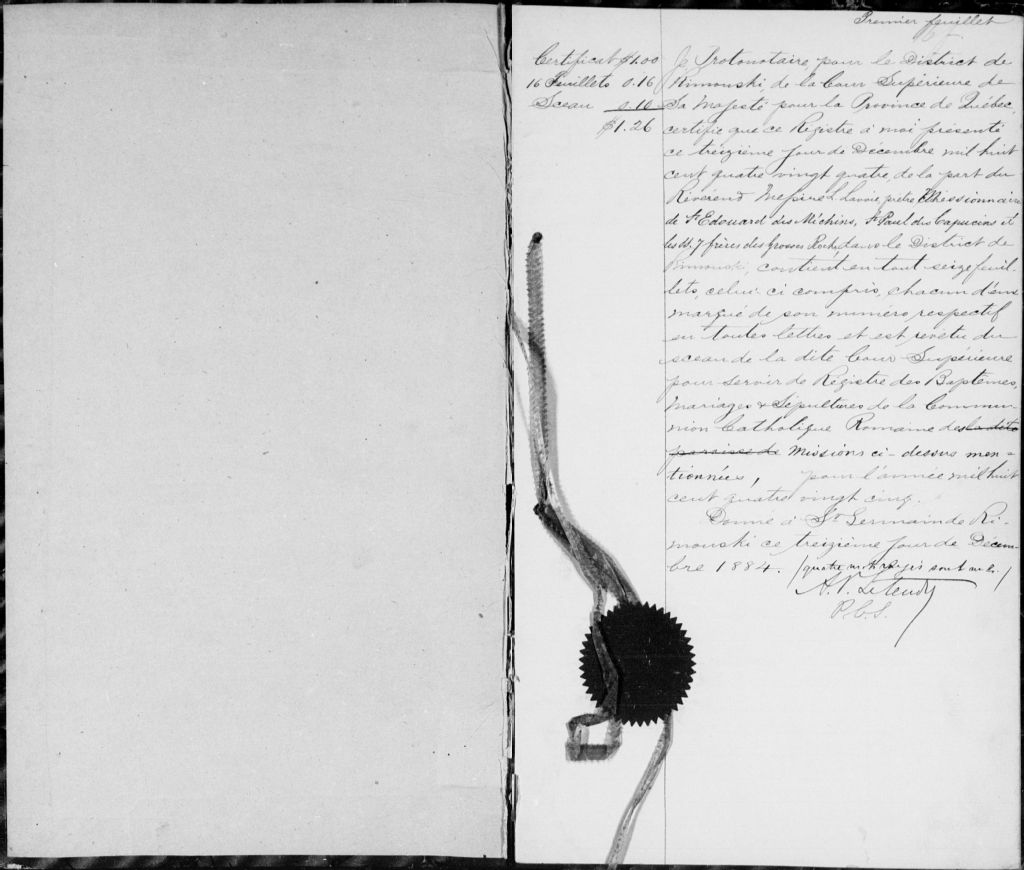 Premier feuillet
Certificat $1.00
16 Feuillets 0.16
Sceau 0.10
$1.26
Je Protonotaire pour le District de
Rimouski, de la Cour Supérieure de
Sa Majesté pour la Province de Québec,
certifie que ce Registre à moi présenté
ce treizième jour de Décembre mil huit
cent quatre vingt quatre, de la part du
Révérend Messire L. Lavoie, prêtre Missionnaire
de St Edouard des Méchins, St Paul des Capucins et
les SS. 7 frères des Grosses Roches, dans le District de
Rimouski, contient en tout seize feuil-
lets, celui-ci compris, chacun d'eux
marqué de son numéro respectif
en toutes lettres et est revêtu du
sceau de la dite Cour Supérieure
pour servir de Registre des Baptêmes,
Mariages & Sépultures de la Commu-
nion Catholique Romaine des la dite
paroisse de Missions ci-dessus men-
tionnées, pour l'année mil huit
cent quatre vingt cinq.
Donné à St Germain de Ri-
mouski ce treizième jour de Décem-
bre 1884. (quatre mots rayés sont nuls.)
P.C.S.